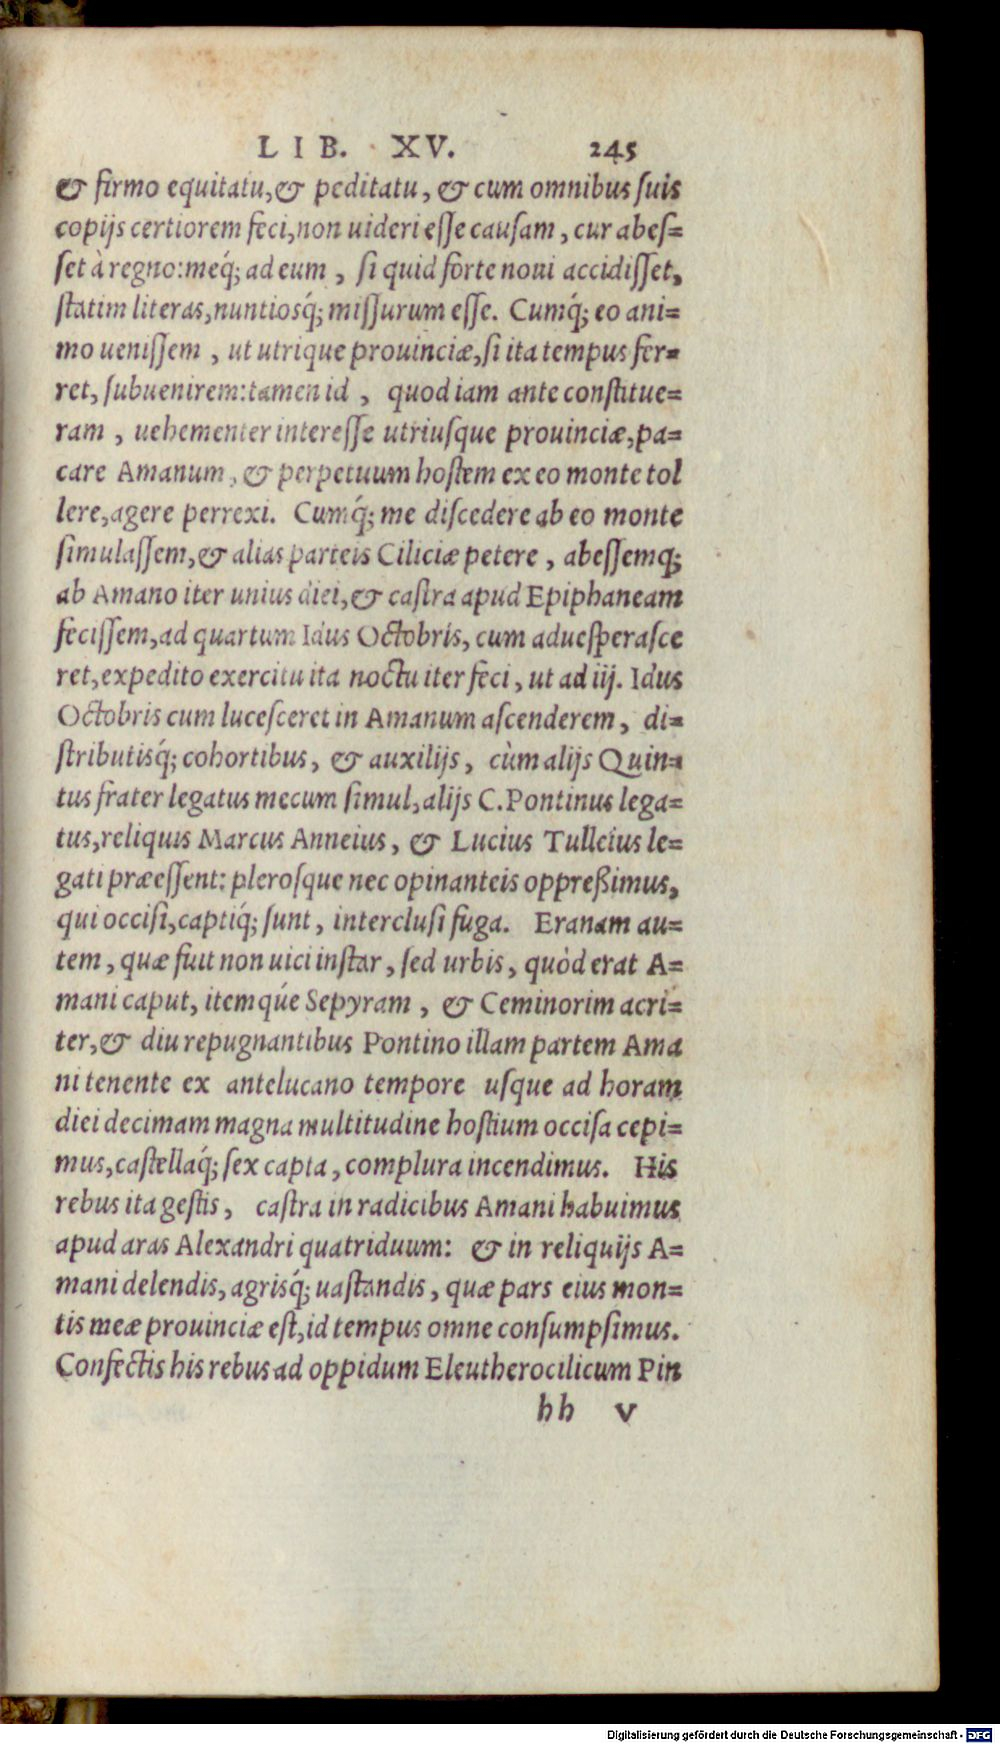 LIB. XV. 245
& firmo equitatu,& peditatu, & cum omnibus ſuis
copijs certiorem feci,non uideri eſſe cauſam, cur abeſ=
ſet à regno:meq́; ad eum, ſi quid forte noui accidiſſet,
ſtatim literas,nuntiosq́; miſſurum eſſe. Cumq́; eo ani=
mo ueniſſem, ut utrique prouinciæ,ſi ita tempus fer=
ret, ſubuenirem:tamen id, quod iam ante conſtitue=
ram, uehementer intereſſe utriuſque prouinciæ,pa=
care Amanum, & perpetuum hoſtem ex eo monte tol
lere,agere perrexi. Cumq́; me diſcedere ab eo monte
ſimulaſſem,& alias parteis Ciliciæ petere, abeſſemq;
ab Amano iter unius diei,& caſtra apud Epiphaneam
feciſſem,ad quartum Idus Octobris, cum adueſperaſce
ret,expedito exercitu ita noctu iter feci, ut ad iij. Idus
Octobris cum luceſceret in Amanum aſcenderem, di=
ſtributisq́; cohortibus, & auxilijs, cùm alijs Quin=
tus frater legatus mecum ſimul,alijs C.Pontinus lega=
tus,reliquis Marcus Anneius, & Lucius Tulleius le=
gati præeſſent: pleroſque nec opinanteis oppreßimus,
qui occiſi,captiq́; ſunt, intercluſi fuga. Eranam au=
tem, quæ fuit non uici inſtar, ſed urbis, quòd erat A=
mani caput, itemqúe Sepyram, & Ceminorim acri=
ter,& diu repugnantibus Pontino illam partem Ama
ni tenente ex antelucano tempore uſque ad horam
diei decimam magna multitudine hoſtium occiſa cepi=
mus,caſtellaq́; ſex capta, complura incendimus. His
rebus ita geſtis, caſtra in radicibus Amani habuimus
apud aras Alexandri quatriduum: & in reliquijs A=
mani delendis, agrisq́; uaſtandis, quæ pars eius mon=
tis meæ prouinciæ eſt,id tempus omne conſumpſimus.
Confectis his rebus ad oppidum Eleutherocilicum Pin
hh v
Digitalisierung gefördert durch die Deutsche Forschungsgemeinschaft - DFG